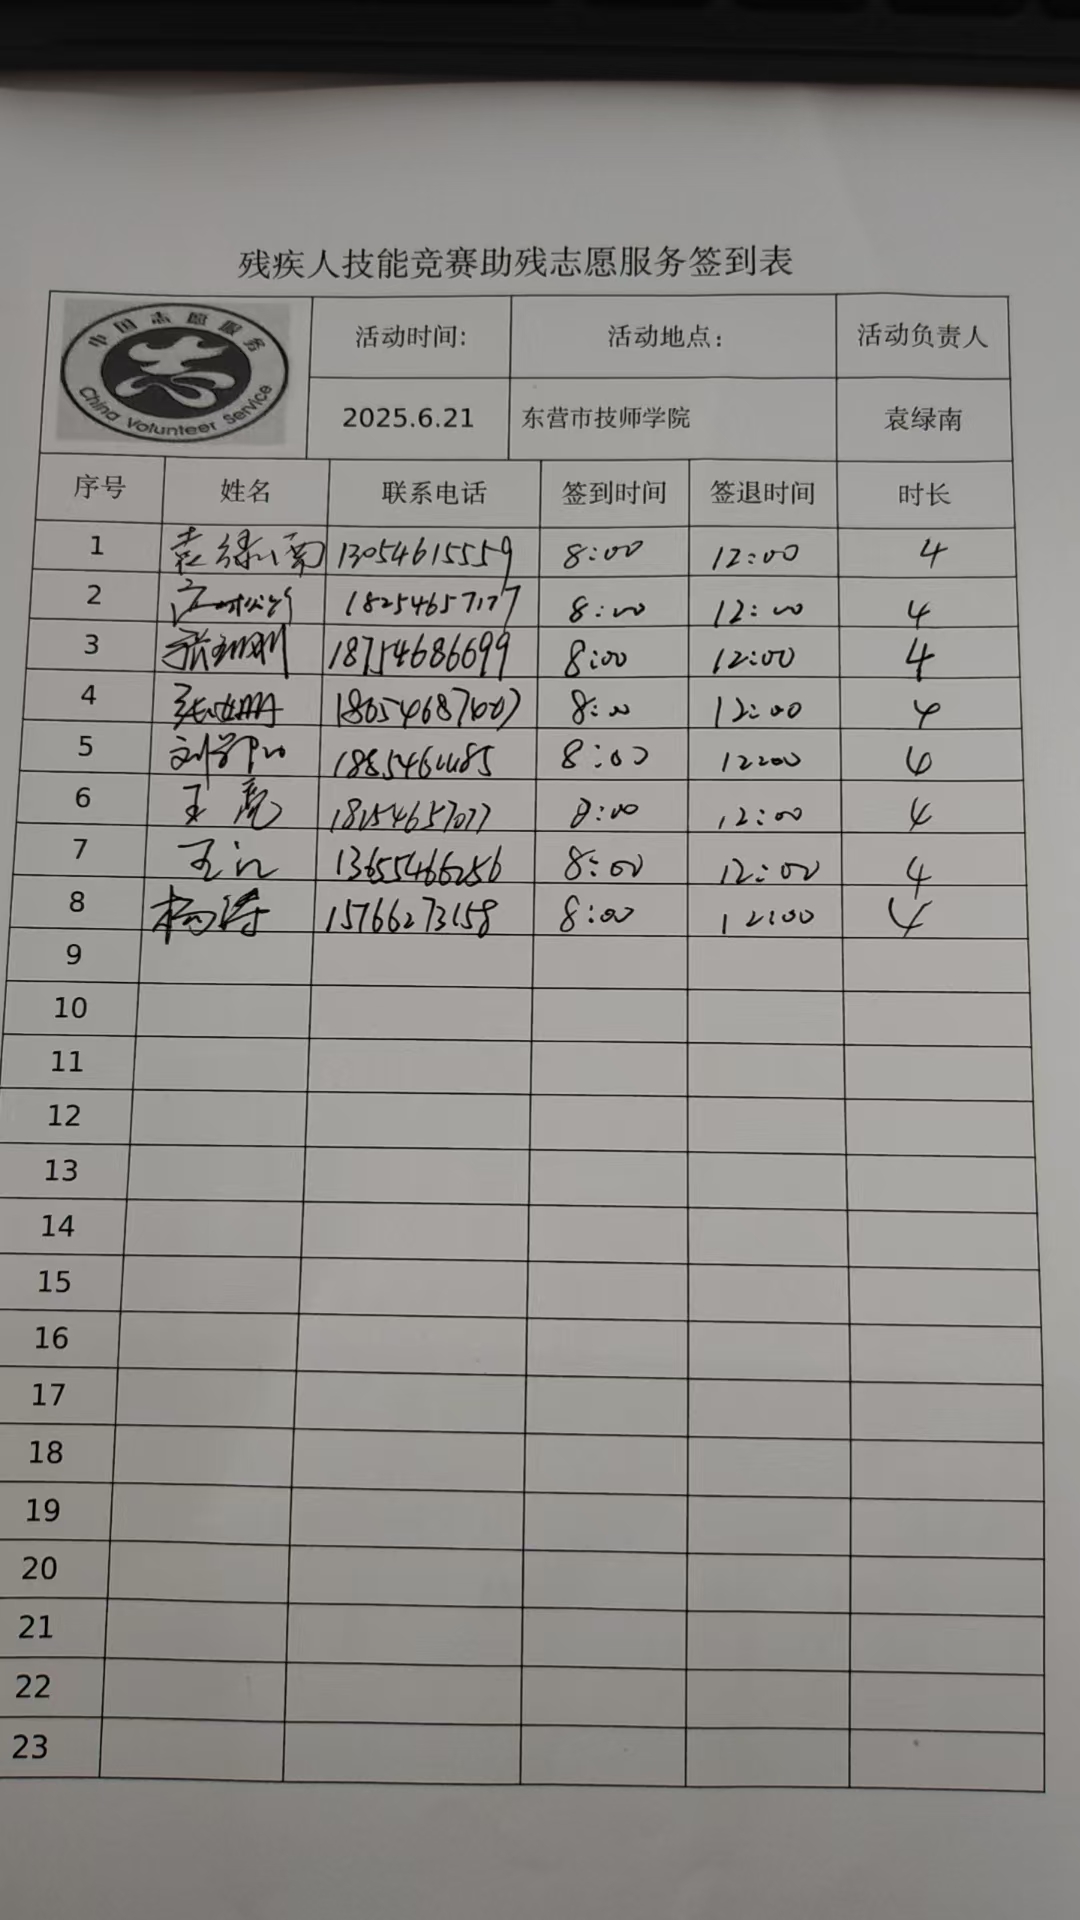 残疾人技能竞赛助残志愿服务签到表
中国志愿服务
China Volunteer Service
活动时间: 活动地点: 活动负责人
2025.6.21 东营市技师学院 袁绿南
序号 姓名 联系电话 签到时间 签退时间 时长
1 袁绿南 13054615559 8:00 12:00 4
2 8:00 12:00 4
3 18754686699 8:00 12:00 4
4 8:00 12:00 4
5 8:00 12:00
6 王亮 8:00 12:00 4
7 王江 13655466256 8:00 12:00 4
8 杨涛 15766273158 8:00 12:00 4
9
10
11
12
13
14
15
16
17
18
19
20
21
22
23